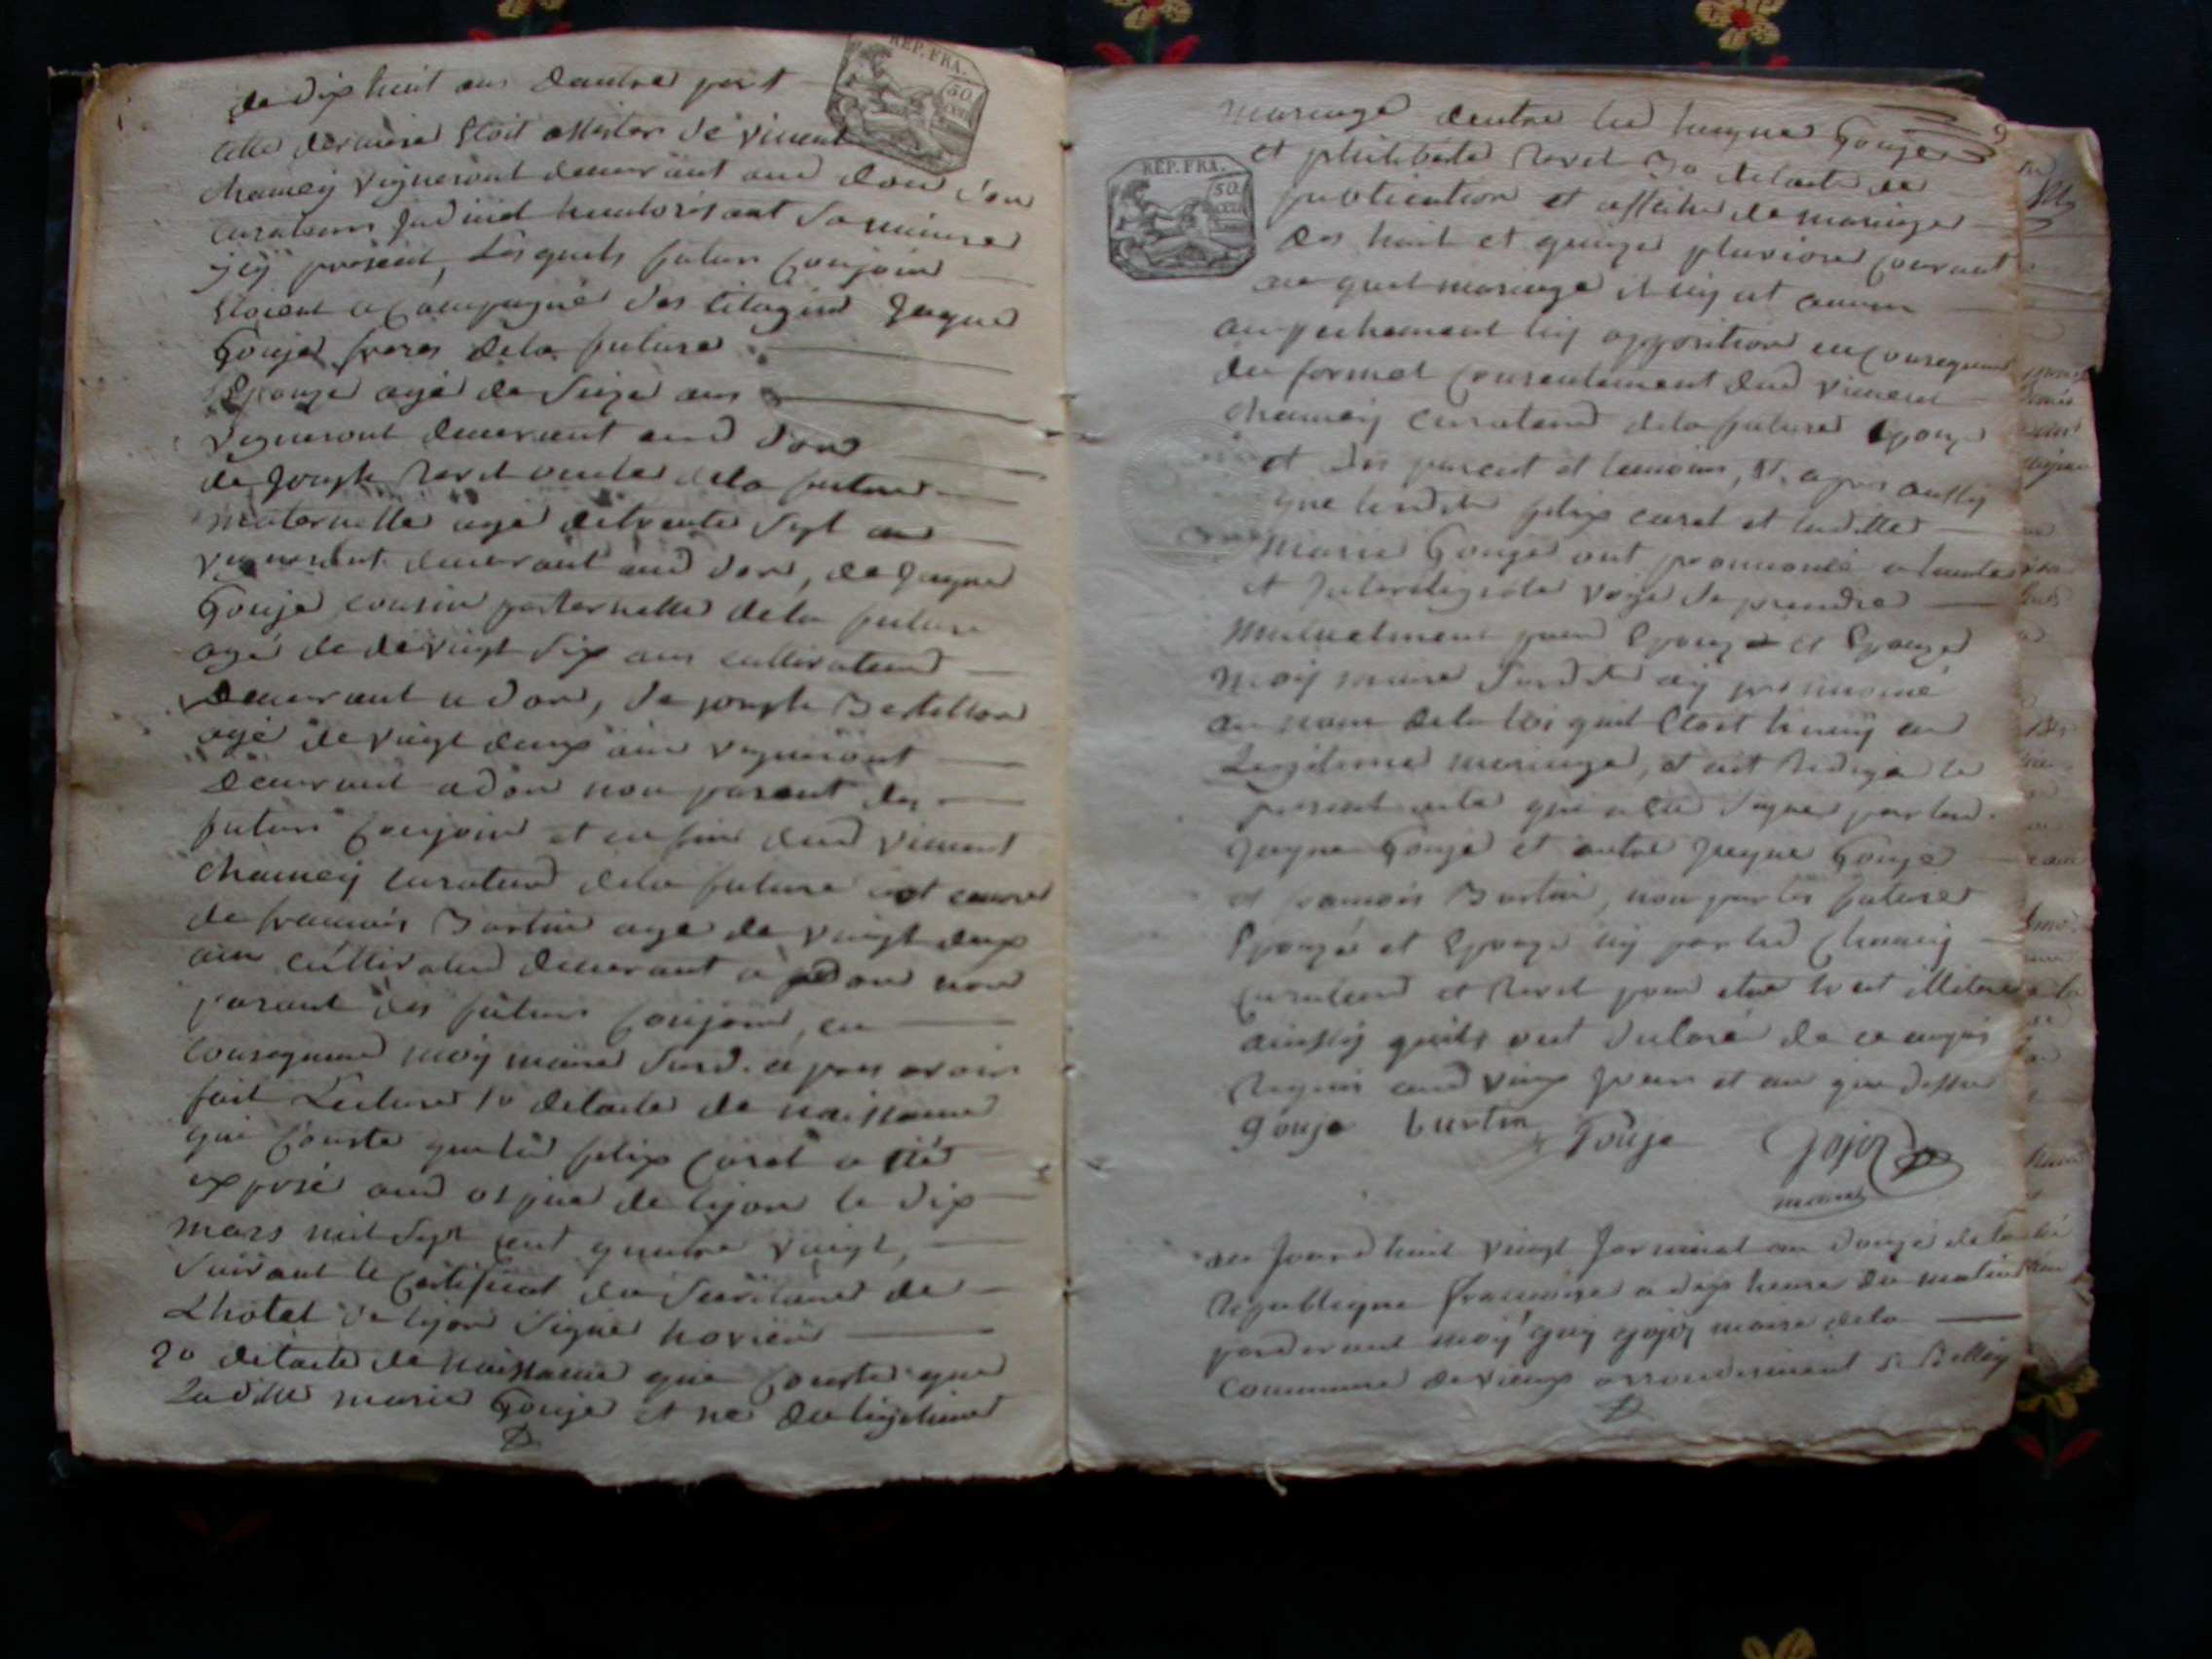 de dix huit ans dautre part
REP. FRA.
50
cette derniere Etoit assister de vincent
chamey vigneront demeurant aud don son
curateur
jcy present, Les quels futur Conjoin
Etoient acompagné des Citogin Jaque
Gouje freres dela future
Epouze agé de Seize ans
vigneront demeurant aud don
de Joseph Revet oncle dela future
maternelle agé de trente sept an
vigneront demeurant aud don, de Jaque
Gouje cousin paternelle dela future
agé de de vingt six ans cultivateur
demeurant a don, de joseph
agé de vingt deux ans vigneront
demeurant a don non parent des
futurs Conjoin et en fin dud vincent
chamey curateur dela future et
de francois Burtin agé de vingt deux
ans cultivateur demeurant a don non
parant des futurs Conjoint, en
Consequence moy maire Susd. apres avoir
fait Lecture 1o delacte de naissance
qui Conste que led felix Caret a été
exposé aud de lyon le dix
mars mil sept cent quatre vingt,
Suivant le Certificat du Secretaire de
Lhotel de lyon Signé
2o delacte de naissance qui Conste que
Laditte marie Gouje et né du legitime
mariage dentre led Gouje
REP. FRA.
50
et philiberte Revet 3o delacte de
publication et affiche de mariage
des huit et quinze pluviose Courant
au quel mariage il ny at aucun
ampechement ny opposition en Consequence
du formel Consentement dud vincent
chamey curateur dela future Epouze
et des parent et temoins, et apres aussy
que ledit felix caret et laditte
marie Gouje ont prononcé a haute
et voye de prendre
mutuelment pour Epoux et Epouze
moy maire Susdit ay prononcé
au nom dela loi quil Etoit huny en
Legitime mariage, et ait Redigé le
present acte qui a été Signé par led.
Jaque Gouje et autre Jaque Gouje
et francois Burtin, non par les future
Epouze et Epouze ny par led Chamey
Curateur et Revet pour etre tout illiteré
ainssy quils ont declaré de ce enquis
Requis aud vieux jour et an que dessus
Gouje burtin Gouje Gojoz
maire
du Jourd huit vingt Jerminal an douze de la
Republique francoise a dix heure du matin
pardevant moy guy gojoz maire dela
Commune de vieux arrondisement de Belley